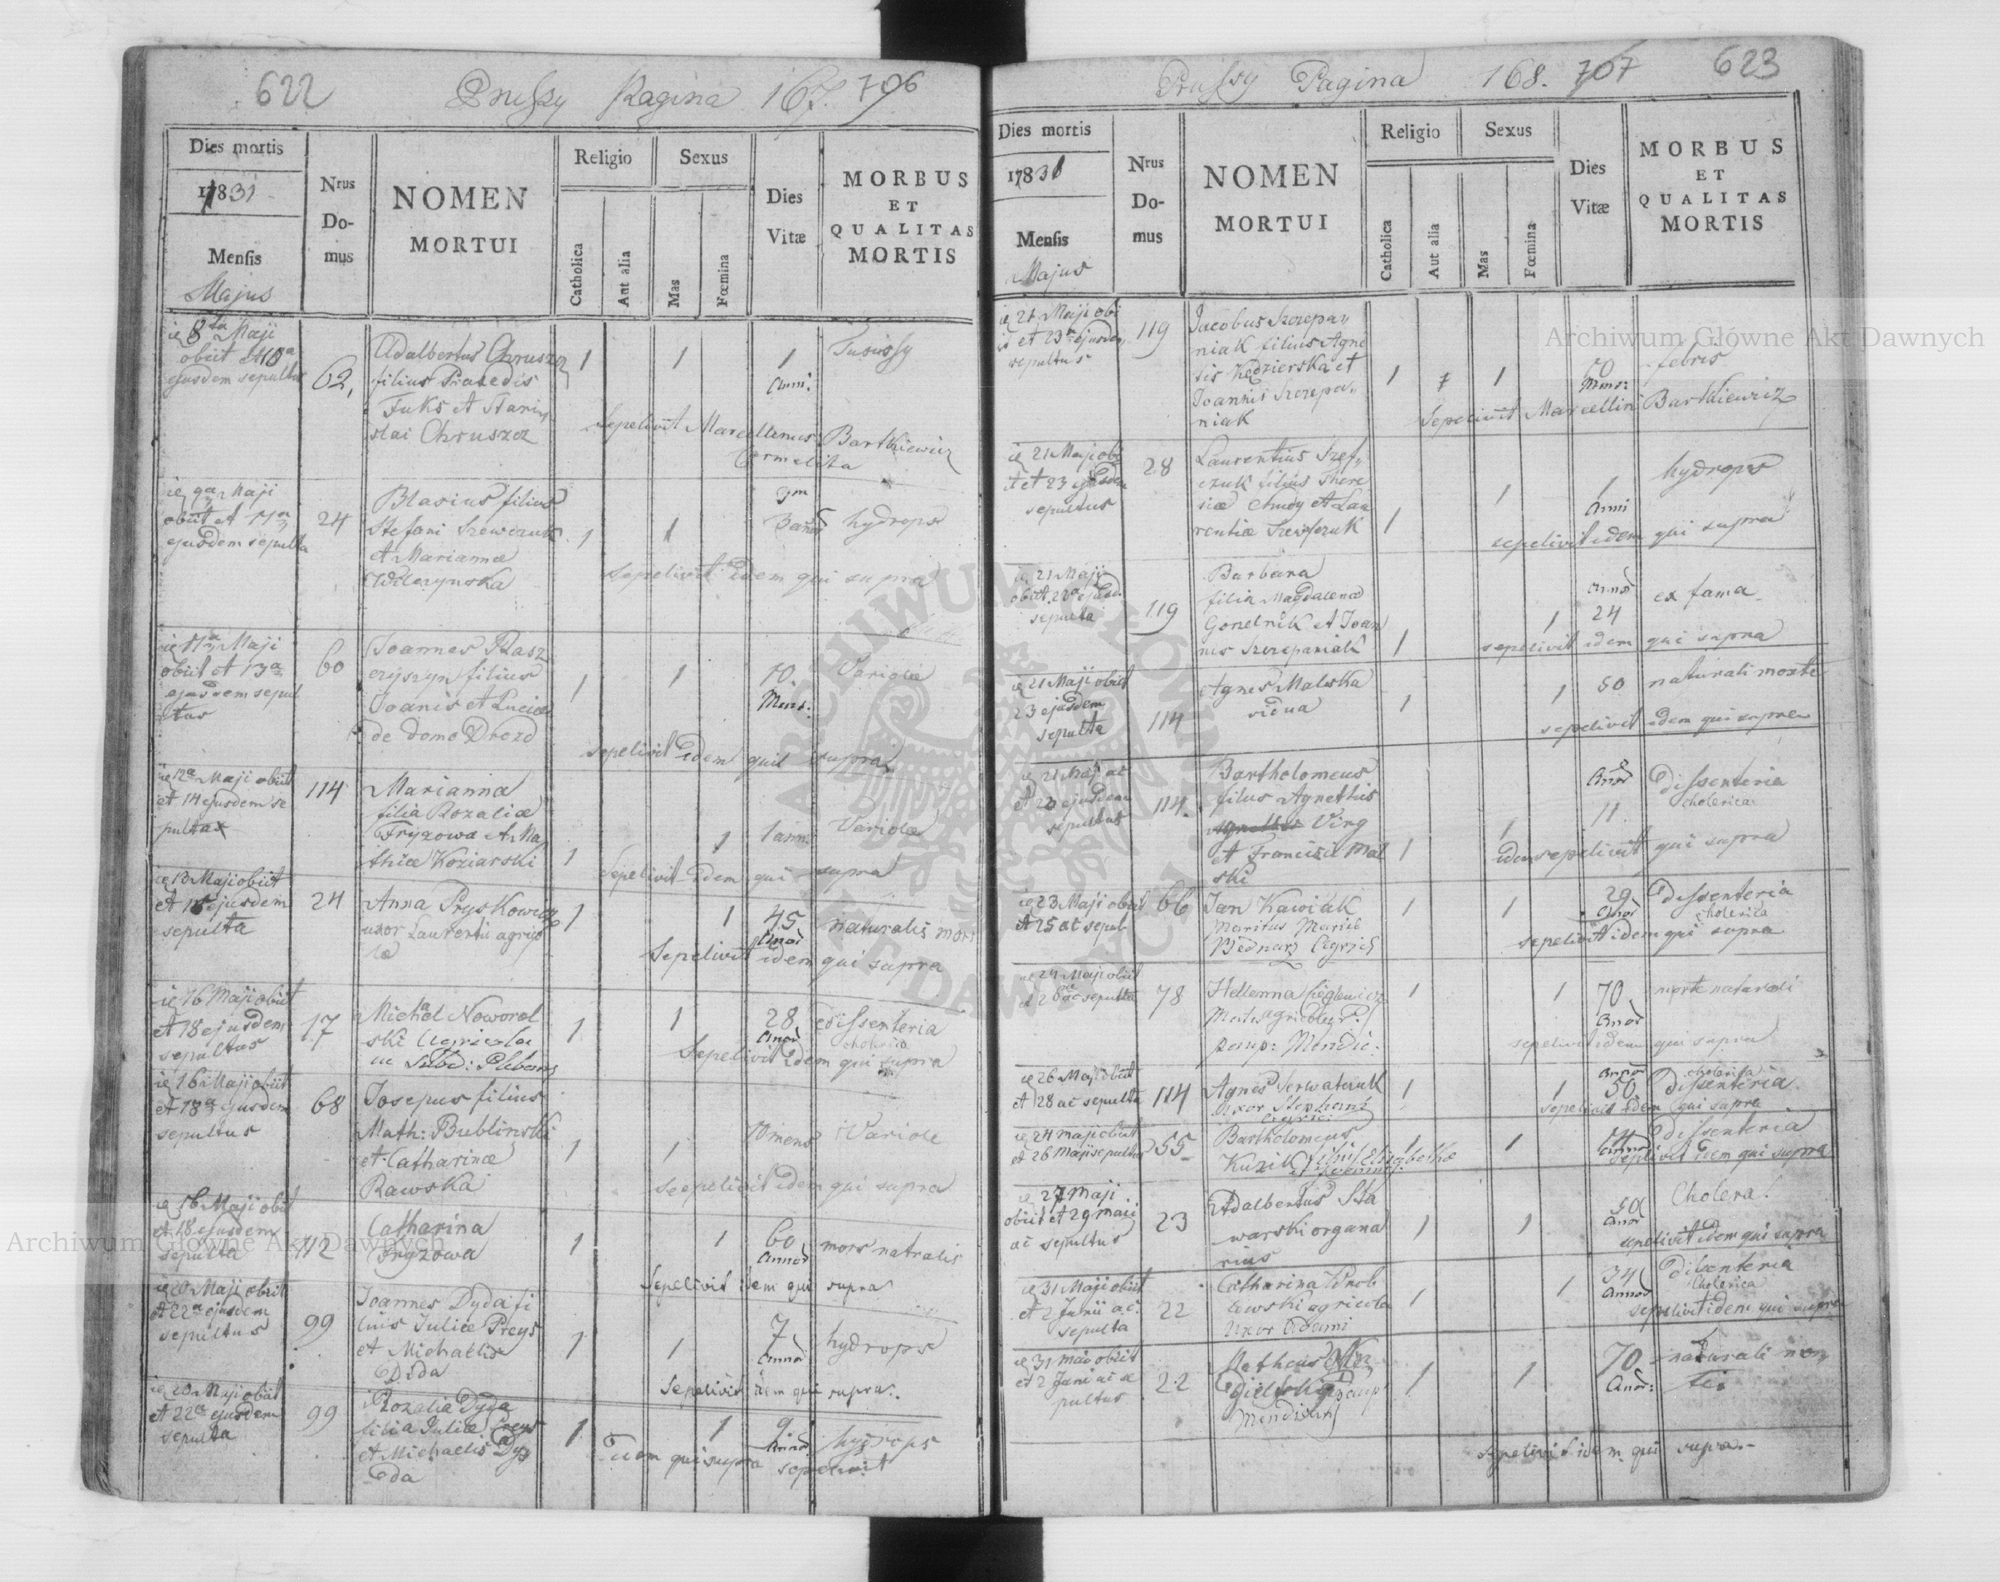 622
Prussy Pagina 167. 706
Dies mortis
1831
Mensis
Majus
Nrus
Do-
mus
NOMEN
MORTUI
Religio
Catholica
Aut alia
Sexus
Mas
Fœmina
Dies
Vitæ
MORBUS
ET
QUALITAS
MORTIS
8va Maji
obiit et 10a
ejusdem sepultus
62,
Adalbertus Chruszcz
filius Praxedis
Fuks et Stani
slai Chruszcz
1
1
1
Anni
Tussis
Sepelivit Marcellinus Bartkiewicz
Carmelita
9na Maji
obiit et 11a
ejusdem sepulta
24
Blasius filius
Stefani Szewczuk
et Mariannæ
Wilczynska
1
1
hydrops
sepelivit idem qui supra
11a Maji
obiit et 13a
ejusdem sepul
tus
60
Joannes Rasz
czyszyn filius
Joanis et Luciæ
de domo Drozd
1
1
10.
Mens:
Variolæ
sepelivit idem qui supra
12a Maji obiit
et 14 ejusdem se
pulta
114
Marianna
filia Rozaliæ
Fryzowa et Ma
thiæ Koziarski
1
1
1 anni
Variolæ
Sepelivit idem qui supra
13 Maji obiit
et 15 ejusdem
sepulta
24
Anna Pryskowa
uxor Laurentii agrico
læ
1
1
45
Annor
naturalis mors
Sepelivit idem qui supra
16 Maji obiit
et 18 ejusdem
sepultus
17
Michael Noworol
ski Agricola
ac Subd: Plebans
1
1
28
Annor
dissenteria
cholerica
Sepelivit idem qui supra
16 Maji obiit
et 18a ejusdem
sepultus
68
Josepus filius
Math: Bublinski
et Catharinæ
Rawska
1
1
10 mens
Variole
seepelivit idem qui supra
16 Maji obiit
et 18 ejusdem
sepulta
112
Catharina
Fryzowa
1
1
60
Annor
mors natralis
Sepelivit idem qui supra
20 Maji obiit
et 22a ejusdem
sepultus
99
Joannes Dyda fi
lius Juliæ Preys
et Michaelis
Dida
1
1
7
Annor
hydrops
Sepelivit idem qui supra.
20 Maji obiit
et 22a ejusdem
sepulta
99
Rozalia Dyga
filia Juliæ Preys
et Michaelis Dy
da
1
1
9
Annor
hydrops
Idem qui supra sepelivit
623
Prussy Pagina 168. 707
Dies mortis
1831
Mensis
Majus
Nrus
Do-
mus
NOMEN
MORTUI
Religio
Catholica
Aut alia
Sexus
Mas
Fœmina
Dies
Vitæ
MORBUS
ET
QUALITAS
MORTIS
21 Maji obi
it et 23a ejusdem
sepultus
119
Jacobus Szczepa
niak filius Agne
tis Kędzierska et
Joannis Szczepa
niak
1
1
10
Mens:
febris
Sepelivit Marcellin Bartkiewicz
21 Maji obi
it et 23 ejusdem
sepultus
28
Laurentius Szef
czuk filius There
siæ Chudy et Lau
rentiæ Szewczuk
1
1
1
Anni
hydrops
sepelivit idem qui supra
21 Maji
obiit 22a ejusd.
sepulta
119
Barbara
filia Magdalenæ
Gonelnik et Joan
nis Szczepaniak
1
1
Annor
24
ex fama
sepelivit idem qui supra
21 Maji obiit
23 ejusdem
sepulta
114
Agnes Malska
vidua
1
1
50
naturali morte
sepelivit idem qui supra
21 Maji ac
et 23 ejusdem
sepultus
114.
Bartholomeus
filius Agnettis
Wirg
et Francisci Mal
ski
1
1
Annor
11
Dissenteria
cholerica
idem sepelivit qui supra
23 Maji obiit
et 25 ac sepul
66
Jan Kawiak
Maritus Mariæ
Bednarz Agrich
1
1
29
Annor
Dissenteria
cholerica
sepelivit idem qui supra
24 Maji obiit
et 26 ac sepulta
78
Hellenna
paup: Mendic:
1
1
70
Annor
morte naturali
sepelivit idem qui supra
26 Maji obiit
et 28 ac sepulta
114
Agnes Serwatczuk
Uxor Stephani
1
1
Annor
50
cholerica
Dissenteria
Sepelivit idem qui supra
24 Maji obiit
et 26 Maji sepultus
55
Bartholomeus
Kuzik filius Elisabethæ
1
1
Annor
Dissenteria
seplivit idem qui supra
27 Maji
obiit et 29 maii
ac sepultus
23
Adalbertus Sta
warski organa
rius
1
1
50
Annor
Cholera.
sepelivit idem qui supra
31 Maji obiit
et 2 Junii ac
sepulta
22
Catharina Wrob
lewski agricola
Uxor Adami
1
1
34
Annor
Disenteria
Cholerica
sepelivit idem qui supra
31 Maji obiit
et 2 Juni ac se
pultus
22
Matheus
Mendicus
1
1
70
Annor:
naturali mor
te.
sepelivit idem qui supra.-
Archiwum Główne Akt Dawnych
Archiwum Główne Akt Dawnych
ARCHIWUM GŁÓWNE AKT DAWNYCH